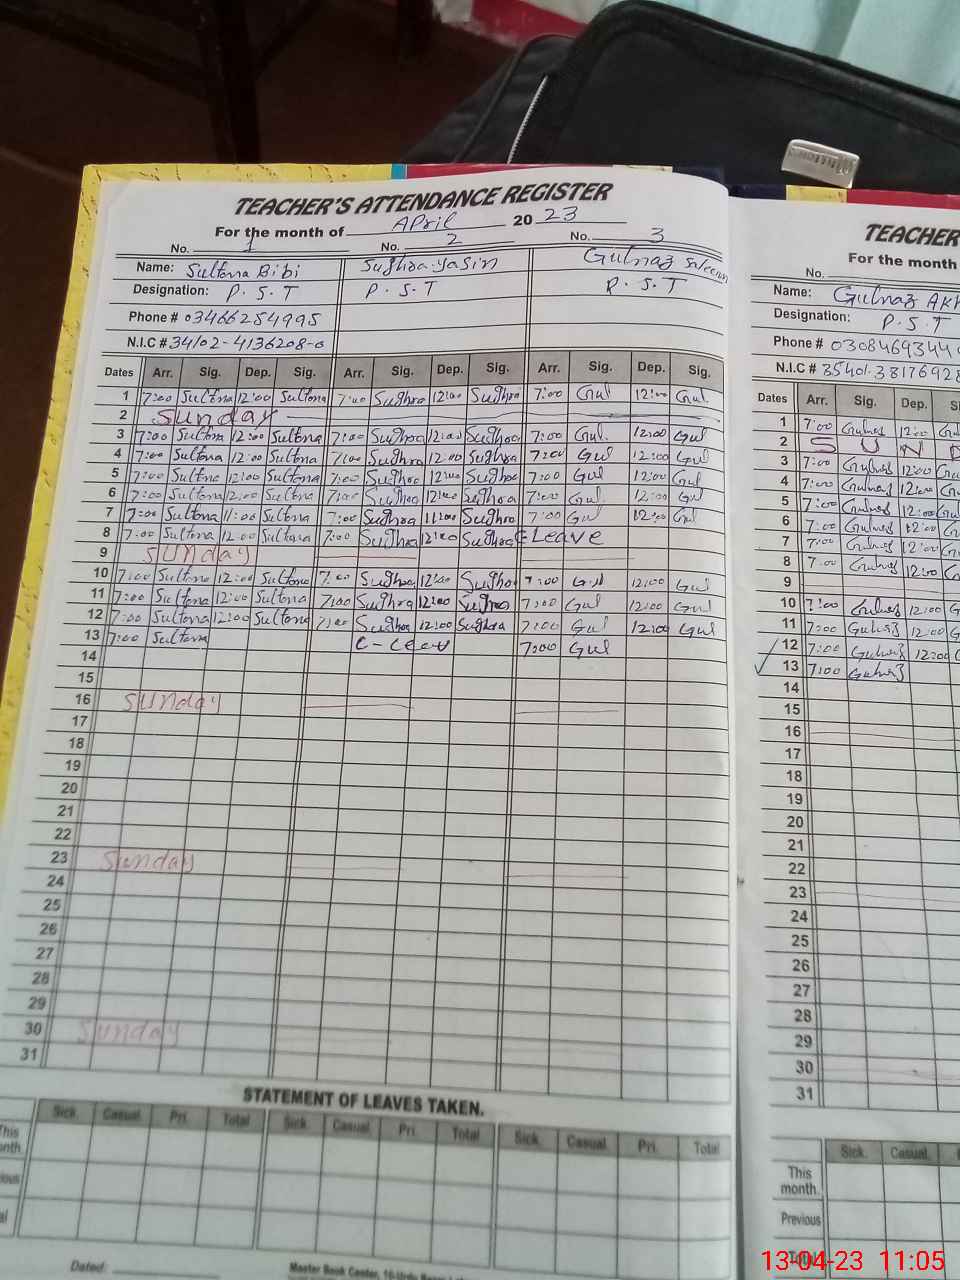 TEACHER'S ATTENDANCE REGISTER
For the month of April 20 23
No. 1 No. 2 No. 3
Name: Sultana Bibi Sughra Yasin Gulnaz
Designation: P.S.T P.S.T P.S.T
Phone # 03466254995
N.I.C # 34102-4136208-0
Dates Arr. Sig. Dep. Sig. Arr. Sig. Dep. Sig. Arr. Sig. Dep. Sig.
1 7:00 Sultana 12:00 Sultana 7:00 Sughra 12:00 Sughra 7:00 Gul 12:00 Gul
2 Sunday
3 7:00 Sultana 12:00 Sultana 7:00 Sughra 12:00 Sughra 7:00 Gul. 12:00 Gul
4 7:00 Sultana 12:00 Sultana 7:00 Sughra 12:00 Sughra 7:00 Gul 12:00 Gul
5 7:00 Sultana 12:00 Sultana 7:00 Sughra 12:00 Sughra 7:00 Gul 12:00 Gul
6 7:00 Sultana 12:00 Sultana 7:00 Sughra 12:00 Sughra 7:00 Gul. 12:00 Gul
7 7:00 Sultana 11:00 Sultana 7:00 Sughra 11:00 Sughra 7:00 Gul 12:00 Gul
8 7:00 Sultana 12:00 Sultana 7:00 Sughra 12:00 Sughra Leave
9 Sunday
10 7:00 Sultana 12:00 Sultana 7:00 Sughra 12:00 Sughra 7:00 Gul 12:00 Gul
11 7:00 Sultana 12:00 Sultana 7:00 Sughra 12:00 Sughra 7:00 Gul 12:00 Gul
12 7:00 Sultana 12:00 Sultana 7:00 Sughra 12:00 Sughra 7:00 Gul 12:00 Gul
13 7:00 Sultana C-Leav 7:00 Gul
14
15
16 Sunday
17
18
19
20
21
22
23 Sunday
24
25
26
27
28
29
30 Sunday
31
STATEMENT OF LEAVES TAKEN.
Sick. Casual. Pri. Total Sick. Casual. Pri. Total Sick. Casual. Pri. Total
This
Dated:
Master Book Center,
TEACHER
For the month
No.
Name: Gulnaz
Designation: P.S.T
Phone # 030846934
N.I.C # 35401-3817692
Dates Arr. Sig. Dep.
1 7:00 Gulnaz 12:00
2 S U N D
3 7:00 Gulnaz 12:00
4 7:00 Gulnaz 12:00
5 7:00 Gulnaz 12:00
6 7:00 Gulnaz 12:00
7 7:00 Gulnaz 12:00
8 7:00 Gulnaz 12:00
9
10 7:00 Gulnaz 12:00
11 7:00 Gulnaz 12:00
12 7:00 Gulnaz 12:00
13 7:00 Gulnaz
14
15
16
17
18
19
20
21
22
23
24
25
26
27
28
29
30
31
Sick. Casual.
This
month.
Previous
Total
13-04-23 11:05